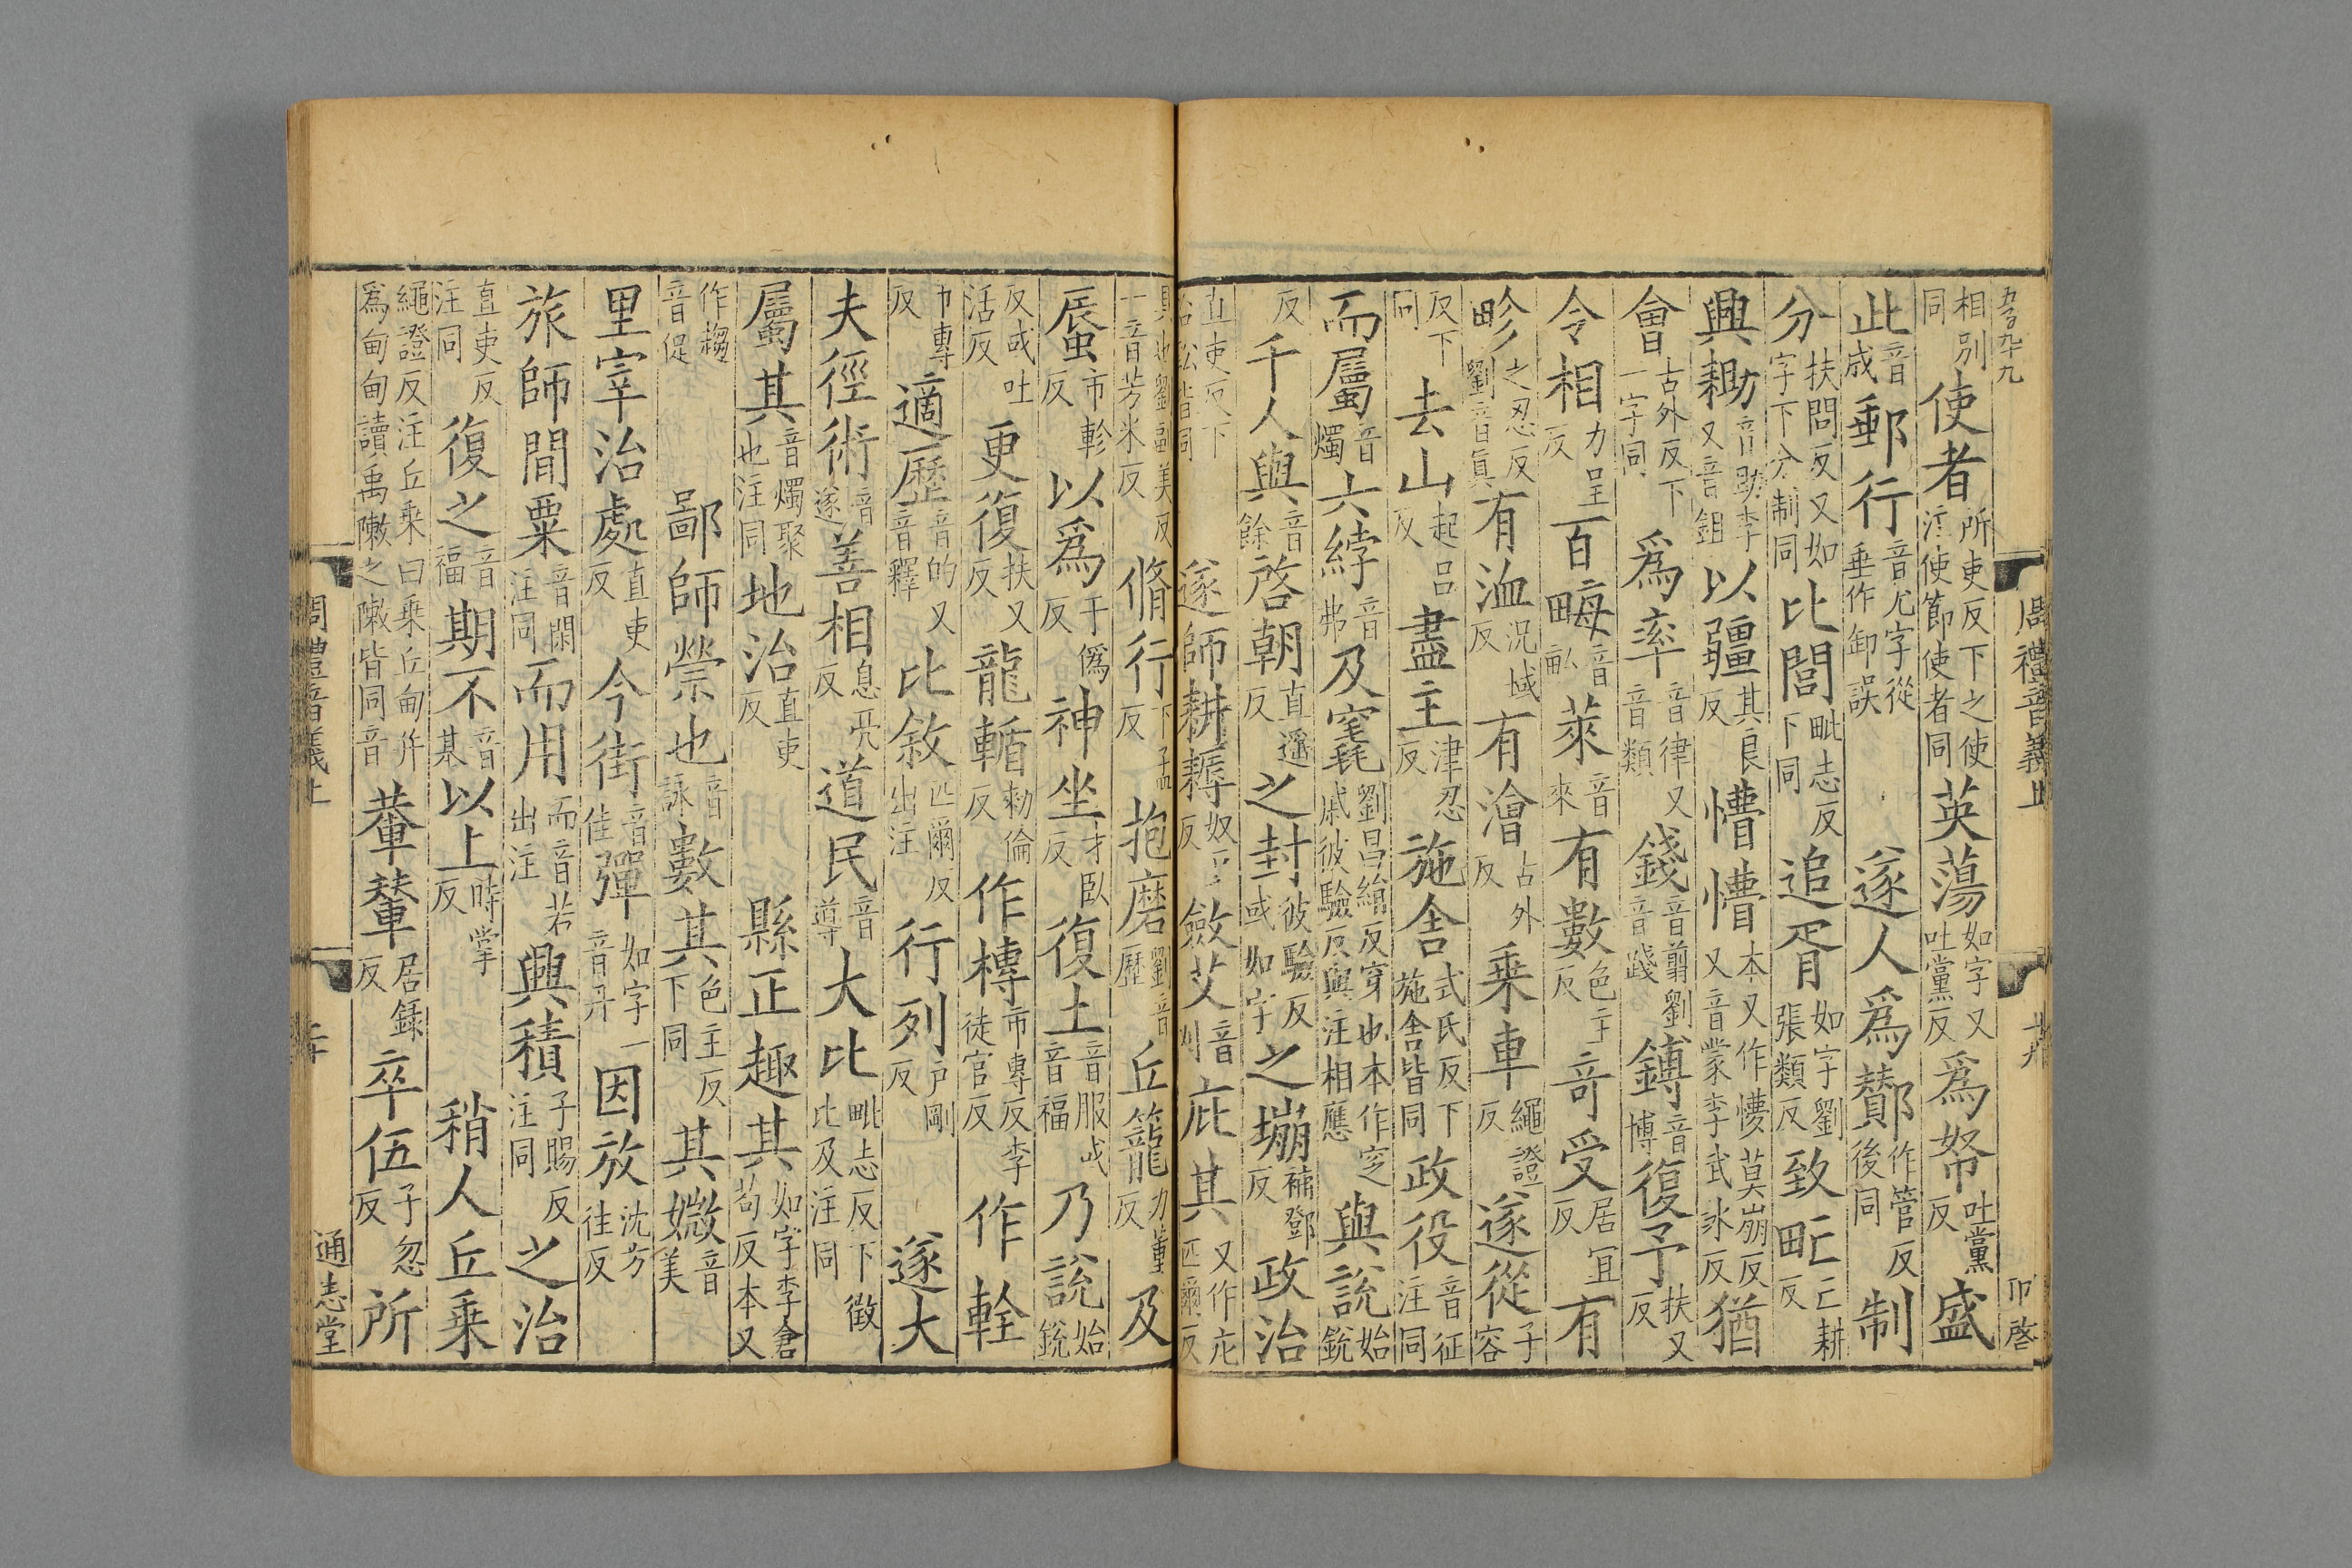 五百九十九 周禮音義上 卭啓
相別同使者所吏反下之使注使節使者同英蕩如字又吐黨反為帑吐黨反盛
此音成郵行音尤字從垂作卸誤 遂人為酇作管反後同制
分扶問反又如字下分制同比閭毗志反下同追胥如字劉張類反致甿亡耕反
興耡音助李又音鉏以疆其良反懵懵本又作㒱莫崩反又音蒙李武冰反猶
會古外反下一字同為率音律又音類錢音翦劉音踐鎛音博復予扶又反
令相力呈反百畮音畝萊音來有數色主反奇受居宜反有
畛之忍反劉音真有洫況域反有澮古外反乗車繩證反遂從子容
反下同去山起呂反盡主津忍反施舍式氏反下施舍皆同政役音征注同
而屬音燭六綍音弗及竁劉昌絹反穿也本作穵戚彼驗反與注相應與說始銳
反千人與音餘啓朝直遥反之封彼驗反或如字之堋補鄧反政治
直吏反下治訟皆同 遂師耕耨奴豆反斂艾音刈庇其又作庀匹爾反
具也劉副美反一音芳米反脩行下孟反抱磨劉音歷丘籠力董反及
蜃市軫反以為于偽反神坐才臥反復土音服或音福乃說始銳
反或吐活反更復扶又反龍輴勑倫反作槫市專反李徒官反作輇
巾專反適歷音的又音釋比敘匹爾反出注行列戶剛反 遂大
夫徑術音遂善相息亮反道民音導大比毗志反下比及注同徴
屬其音燭聚也注同地治直吏反 縣正趣其如字李倉苟反本又
作趨音促 鄙師禜也音詠數其色主反下同其媺音美
里宰治處直吏反今街音佳彈如字一音丹因放沈方往反
旅師閒粟音閑注同而用而音若出注興積子賜反注同之治
直吏反注同復之音福期不音基以上時掌反 稍人丘乗
繩證反注丘乗曰乗丘甸并為甸甸讀禹敶之敶皆同音輂輦居錄反卒伍子忽反所
周禮音義上 通志堂